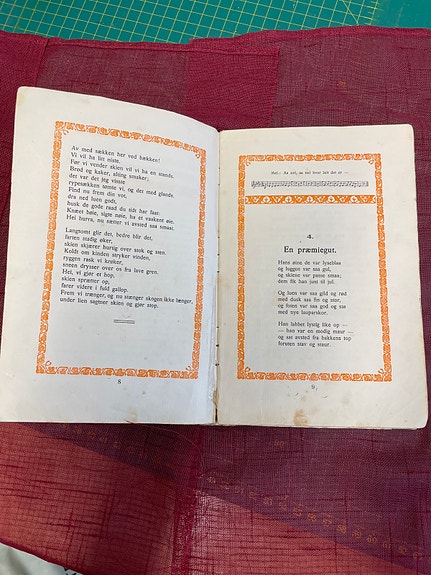 Av med sækken her ved bækken!
Vi vil ha litt niste,
Før vi vender skien vil vi ha en stands.
Brød og kaker, aldrig smaker;
det var det jeg visste
rypesækken tømte vi, og det med glands.
Find nu frem din vott,
dra ned luen godt,
husk de gode raad du tidt har faat:
Knæet bøie, sigte nøie, ha et vaakent øie.
Hei hurra, nu sætter vi avsted saa smaat.
Langsomt glir det, bedre blir det,
farten stadig øker,
skien skjærer hurtig over stok og sten.
Koldt om kinden stryker vinden,
ryggen rask vi krøker,
sneen drysser over os fra lave gren.
Hei, vi gjør et hop,
skien spretter op,
farer videre i fuld gallop.
Frem vi trænger, og nu stænger skogen ikke længer,
under lien sagtner skien og gjør stop.
8
Mel.: Aa nei, aa nei hvor lait det er —
4.
En præmiegut.
Hans øine de var lyseblaa
og luggen var saa gul,
og skiene var passe smaa;
dem fik han just til jul.
Og luen var saa gild og rød
med dusk saa fin og stor,
og foten var saa god og sød
med nye lauparskor.
Han labbet lystig like op —
— han var en modig maur —
og sat avsted fra bakkens top
foruten stav og staur.
9